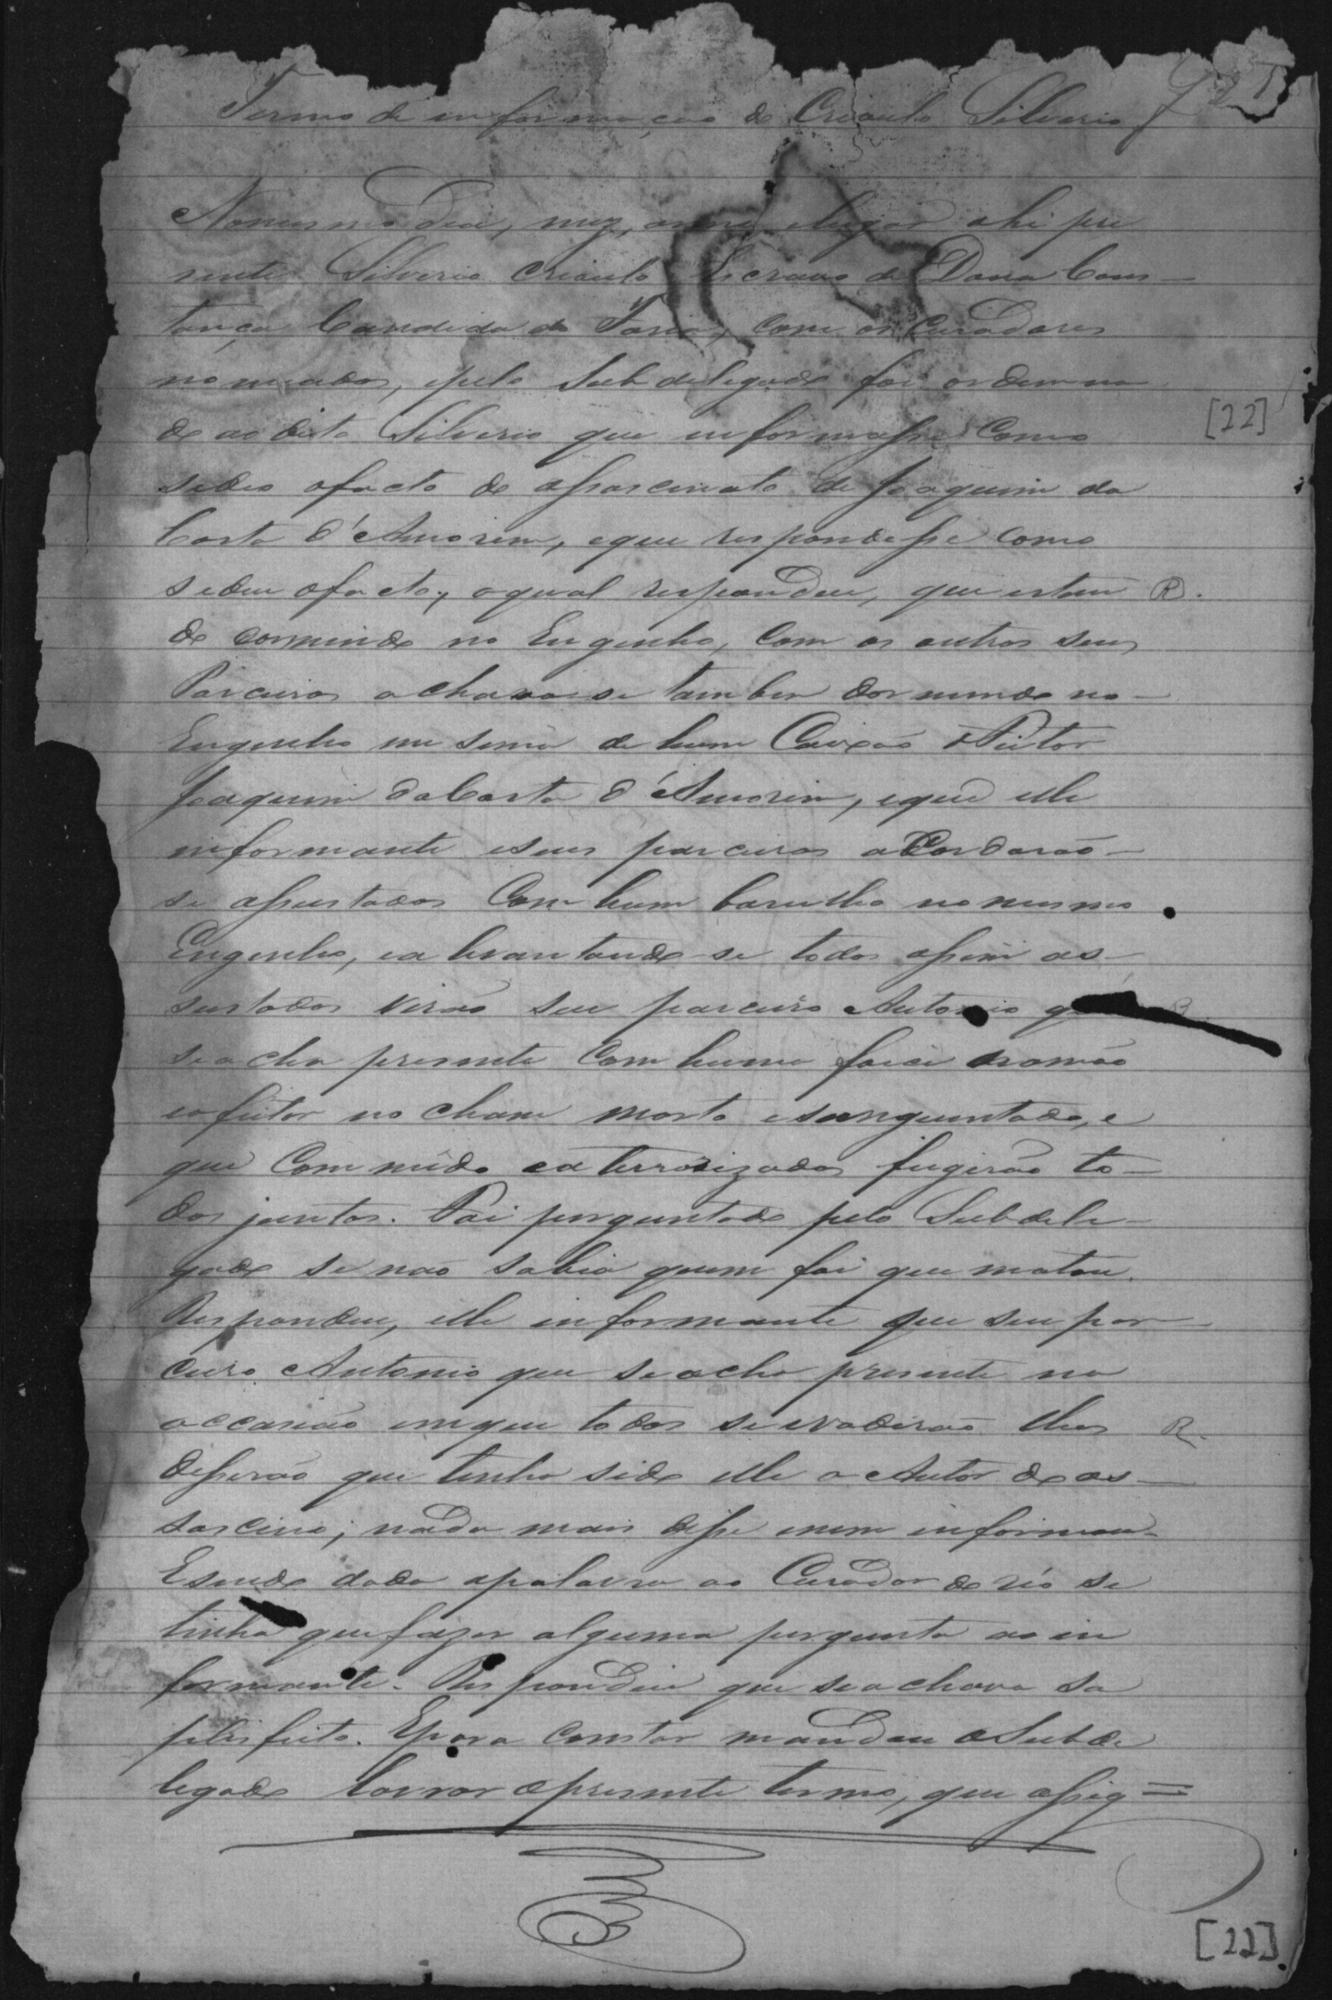 Termo de informação do Crioulo Silverio
No mesmo dia, mez, anno e lugar ahi pre
zente Silverio crioulo Escravo de Dona Cons-
tança Candida de Faria, com os Curadores
nomeados, e pelo Subdelegado foi ordenna
do ao dito Silverio que informasse como
[22]
sedeo o facto do assascinato de Joaquim da
Costa d'Amorim, e que respondesse como
sedeu o facto; o qual respondeu, que estan R.
do dormindo no Engenho, com os outros seus
Parceiros achava-se tambem dormindo no-
Engenho em sima de hum Caixão o Feitor
Joaquim da Costa d'Amorim, e que elle
informante e seus parceiros aCordarão-
se assustados Com hum barulho no mesmo
Engenho, e alevantando-se todos assim as-
sustados virão seu parceiro Antonio que R.
se acha presente Com huma foice na mão
e o feitor no cham morto e sanguentado, e
que Com mêdo e aterrorizados fugirão to-
dos juntos. Foi perguntado pelo Subdele-
gado se não sabia quem foi que matou.
Respondeu, elle informante que seu par-
ceiro Antonio que se acha presente na
occasião em que todos se evadirão lhes R.
disserão que tinha sido elle o Autor do as-
sascino; nada mais disse e nem informou-
E sendo dado a palavra ao Curador do réo se
tinha que fazer alguma pergunta ao in
formante. Respondeu que se achava sa
tisfeito. E para constar mandou o Subde
legado lavrar o presente termo, que assig=
[22]